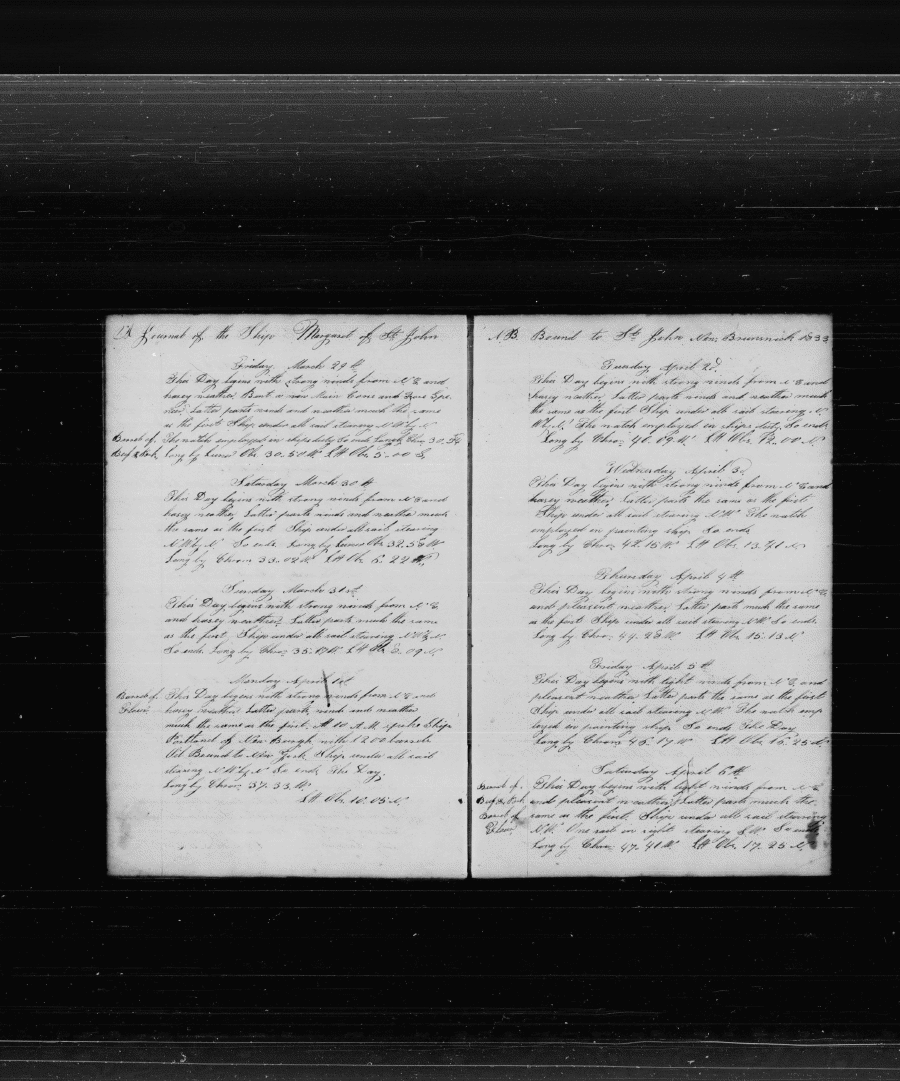 Journal of the Ship Margaret of St John
Friday March 29th
This Day begins with strong winds from N E and
hasey weather, Bent a new Main
Latter parts winds and weather much the same
as the first Ship under all sail stearing N W by N
Barrel of The watch employed in ships duty So ends Long by Chro
Beef & Pork Long by Lunar Obs 30. 50 W Lat Obs 5. 00 S
Saturday March 30th
This Day begins with strong winds from N E and
hasey weather, Latter parts winds and weather much
the same as the first Ship under all sail stearing
N W by N So ends Long by Lunar Obs 32. 58 W
Long by Chro 33. 02 W Lat Obs
Sunday March 31st
This Day begins with strong winds from N E
and hasey weather. Latter parts much the same
as the first, Ship under all sail stearing N W by N
So ends Long by Chro 35. 17 W Lat Obs 8. 09 N
Monday April 1st
Barrel of This Day begins with strong winds from N E and
Flour hasey weather Latter parts winds and weather
much the same as the first. At 10 A.M. spoke Ship
Portland of New with 1200 barrels
Oil Bound to New York Ship under all sail
stearing N W by N So ends This Day
Long by Chro 37. 33 W
Lat Obs 10. 05 N
N B Bound to St John New Brunswick 1833
Tuesday April 2d
This Day begins with strong winds from N E and
hasey weather, Latter parts winds and weather much
the same as the first Ship under all sail stearing N
W by N The watch employed in ships duty So ends
Long by Chro 40. 09 W Lat Obs 12. 00 N
Wednesday April 3d
This Day begins with strong winds from N E and
hasey weather, Latter parts the same as the first
Ship under all sail stearing N W The watch
employed in painting ship So ends
Long by Chro 42. 15 W Lat Obs 13. 41 N
Thursday April 4th
This Day begins with strong winds from N E
and pleasent weather Latter parts much the same
as the first Ship under all sail stearing N W So ends
Long by Chro 44. 28 W Lat Obs 15. 13 N
Friday April 5th
This Day begins with light winds from N E and
pleasent weather Latter parts the same as the first
Ship under all sail stearing N W The watch emp
loyed in painting ship So ends This Day
Long by Chro 46. 17 W Lat Obs 16. 25 N
Saturday April 6th
Barrel of This Day begins with light winds from N E
Beef & Pork and pleasent weather, Latter parts much the
Barrel of same as the first, Ship under all sail stearing
Flour N W One sail in sight stearing S W So ends
Long by Chro 47. 41 W Lat Obs 17. 25 N